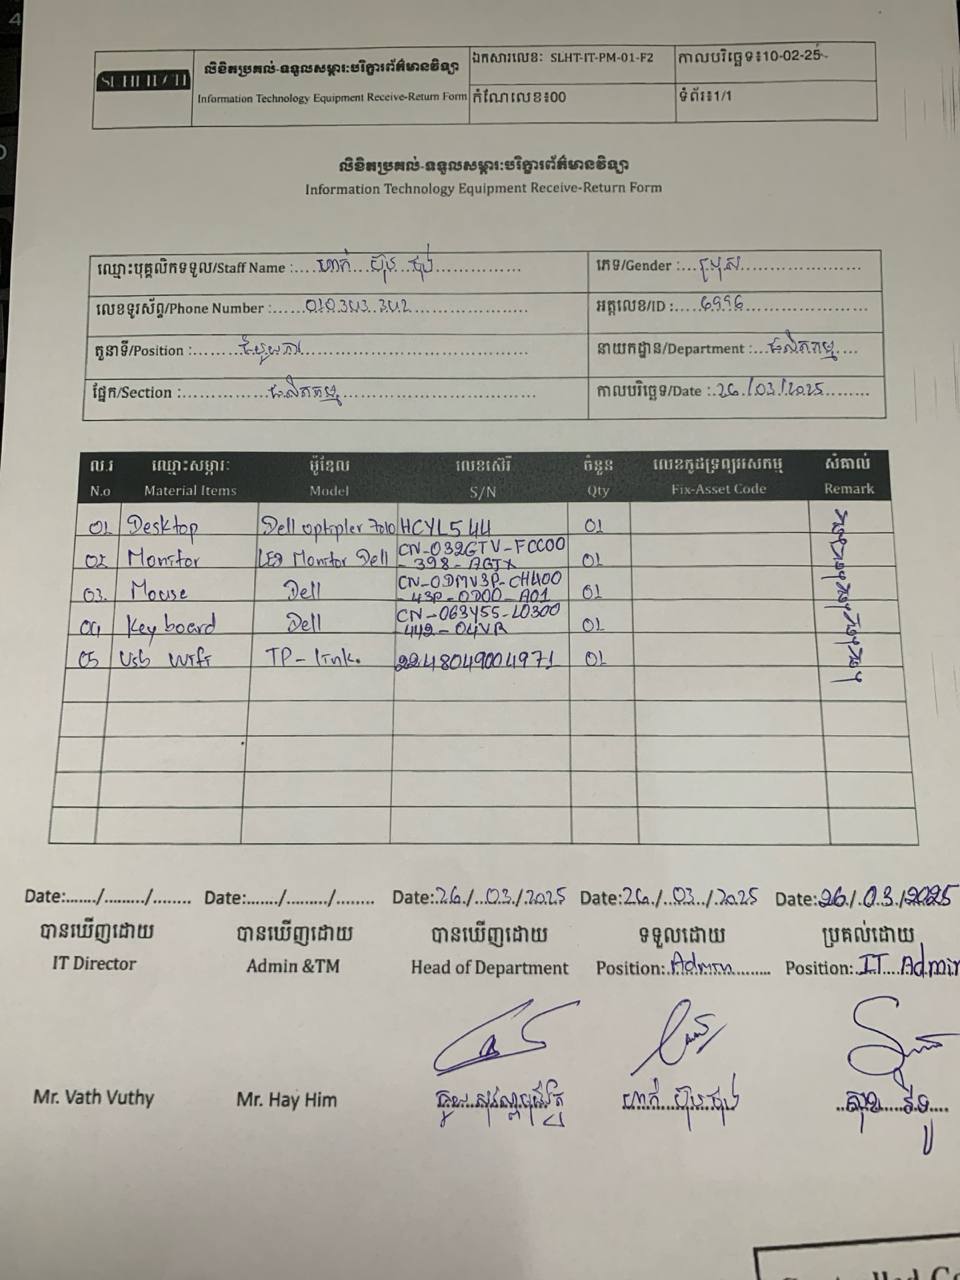 លិខិតប្រគល់-ទទួលសម្ភារៈបរិក្ខារព័ត៌មានវិទ្យា
Information Technology Equipment Receive-Return Form
ឯកសារលេខៈ SLHT-IT-PM-01-F2
កាលបរិច្ឆេទ៖10-02-25
កំណែលេខ៖00
ទំព័រ៖1/1
លិខិតប្រគល់-ទទួលសម្ភារៈបរិក្ខារព័ត៌មានវិទ្យា
Information Technology Equipment Receive-Return Form
ឈ្មោះបុគ្គលិកទទួល/Staff Name :....ហាក់ ប៊ុន ........
ភេទ/Gender :...ប្រុស........
លេខទូរស័ព្ទ/Phone Number :......010.343..342........
អត្តលេខ/ID :.....6996........
តួនាទី/Position :........ជំនួយការ........
នាយកដ្ឋាន/Department :...ផលិតកម្ម....
ផ្នែក/Section :........ផលិតកម្ម........
កាលបរិច្ឆេទ/Date :.26./03./2025........
ល.រ ឈ្មោះសម្ភារៈ ម៉ូឌែល លេខស៊េរី ចំនួន លេខកូដទ្រព្យរសេកម្ម សំគាល់
N.o Material Items Model S/N Qty Fix-Asset Code Remark
01 Desktop Dell optipler 7010 HCYL544 01
02 Monitor LED Monitor Dell CN-032GTV-FCC00
-398-AGTX 01
03. Mouse Dell CN-0DMV3P-CH400
-43P-0D00-A01 01
04 Keyboard Dell CN-063Y55-L0300
442-04VR 01
05 Usb wifi TP-link. 2248049004971 01
Date:....../........./........ Date:....../........./........ Date:.26./..03./.2025 Date:26./..03../.2025 Date:26./.03./2025
បានឃើញដោយ បានឃើញដោយ បានឃើញដោយ ទទួលដោយ ប្រគល់ដោយ
IT Director Admin &TM Head of Department Position:.Admin......... Position:.IT....Admin
Mr. Vath Vuthy Mr. Hay Him
ហាក់ ប៊ុន